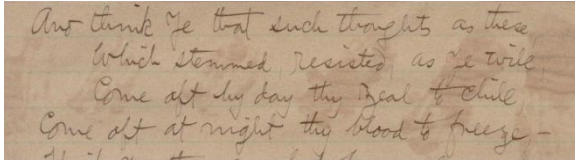 And think ye that such thoughts as these,
Which stemmed, resisted, as ye will,
Come oft by day thy zeal to chill,
Come oft at night thy blood to freeze –